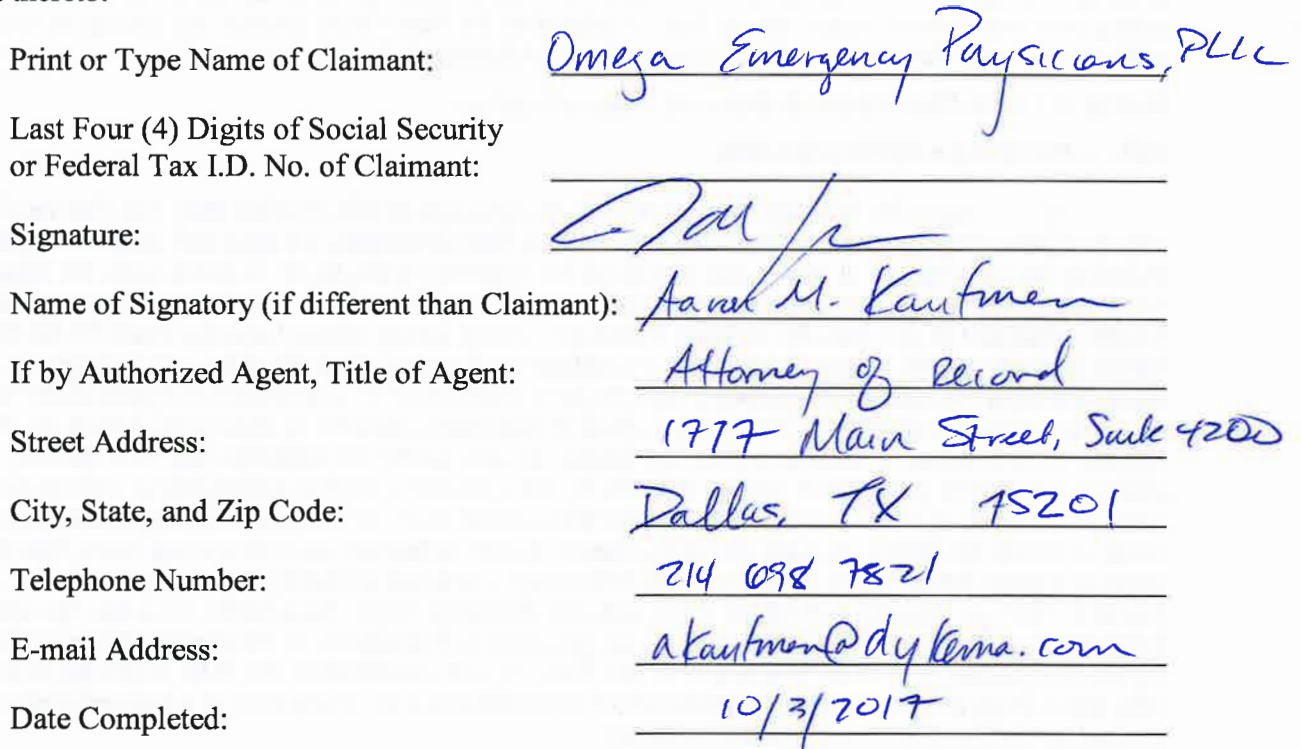 Print or Type Name of Claimant: Omega Emergency Physicians, PLLC
Last Four (4) Digits of Social Security
or Federal Tax I.D. No. of Claimant:
Signature:
Name of Signatory (if different than Claimant): Aaron M. Kaufman
If by Authorized Agent, Title of Agent: Attorney of Record
Street Address: 1717 Main Street, Suite 4200
City, State, and Zip Code: Dallas, TX 75201
Telephone Number: 214 698 7821
E-mail Address: akaufman@dykema.com
Date Completed: 10/3/2017